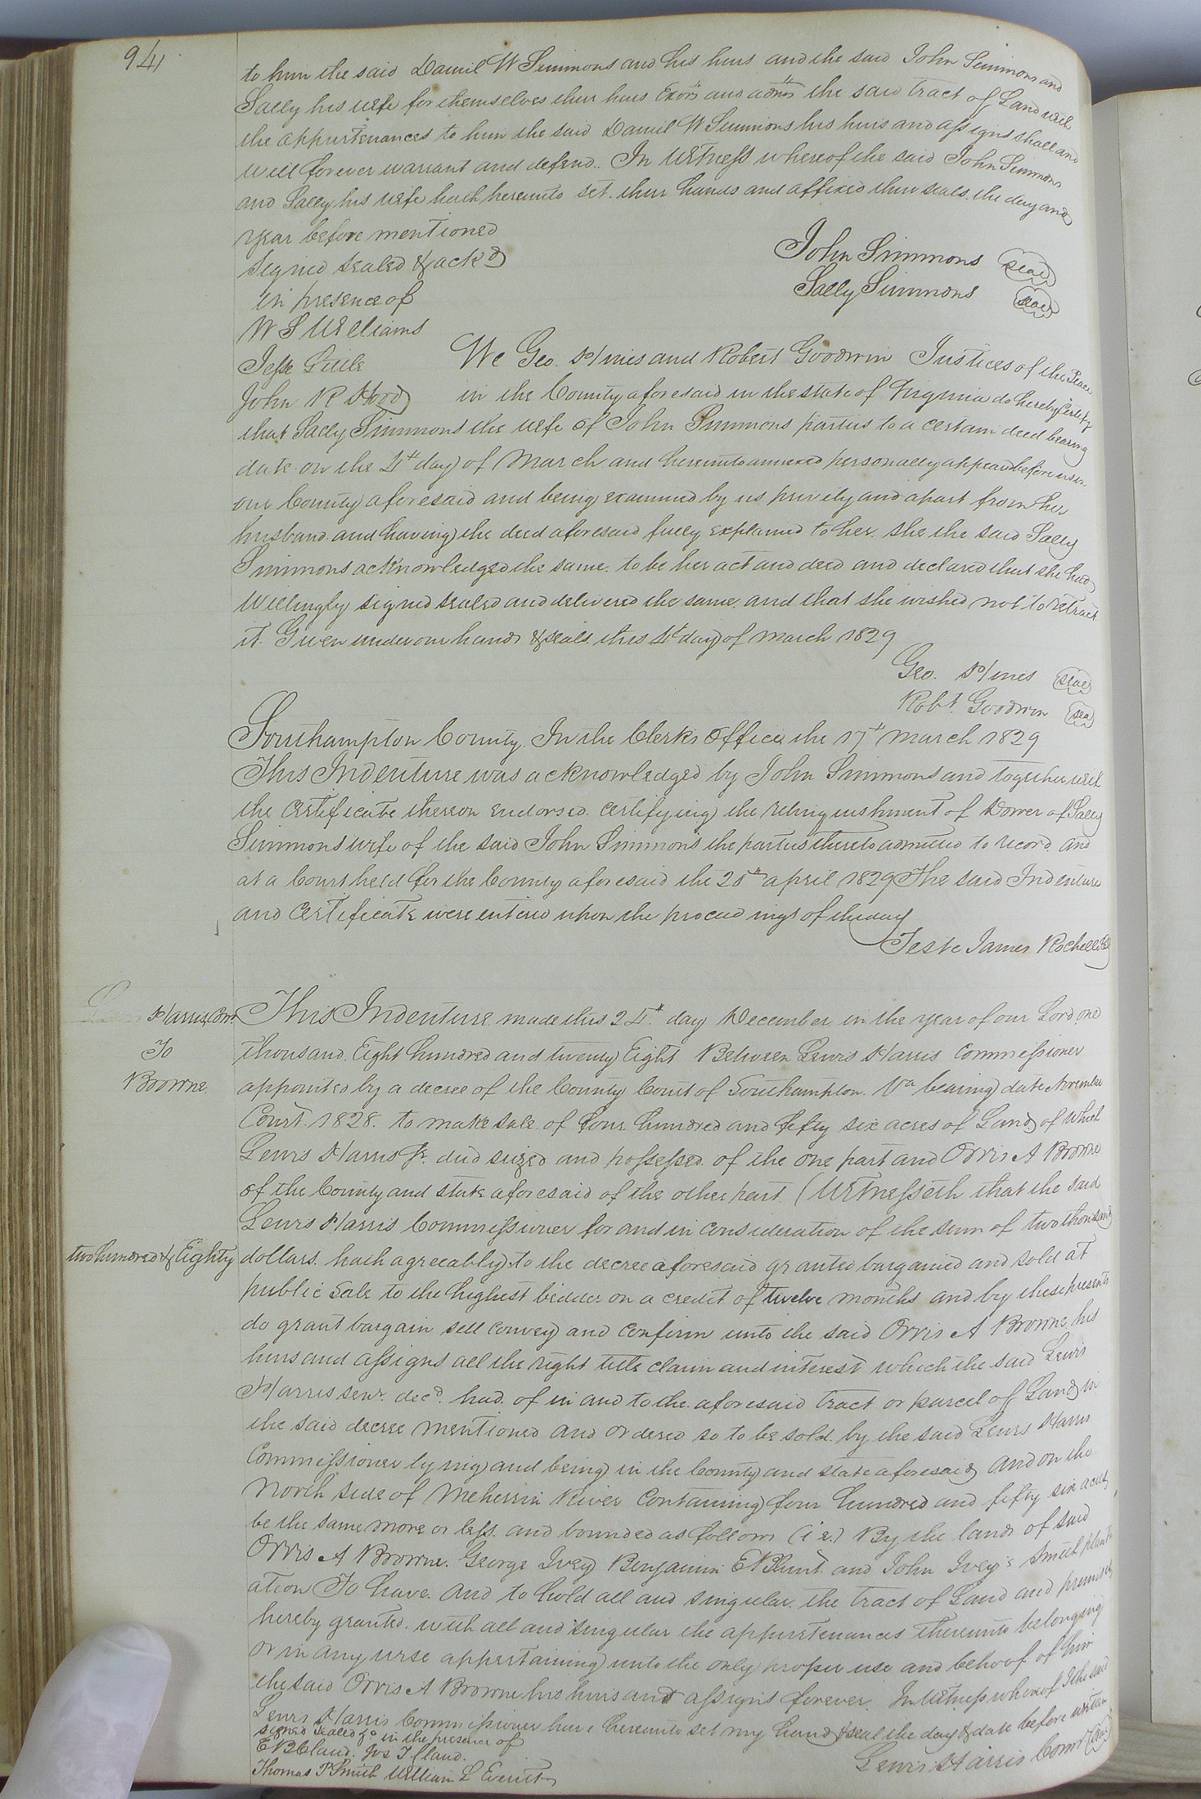 94
to him the said Daniel W Simmons and his heirs and the said John Simmons and
Sally his wife for themselves their heirs Exors and admrs the said tract of Land with
the appurtenances to him the said Daniel W Simmons his heirs and assigns shall and
will forever warrant and defend. In Witness whereof the said John Simmons
and Sally his wife hath hereunto set their hands and affixed their seals the day and
year before mentioned
Signed sealed & ackd
in presence of
W S Williams
Jesse Little
John R Hood
John Simmons seal
Sally Simmons seal
We Geo. Hines and Robert Goodwin Justices of the Peace
in the County aforesaid in the state of Virginia do hereby Certify
that Sally Simmons the wife of John Simmons parties to a certain deed bearing
date on the 4th day of March and hereunto annexed personally appeard before us in
our County aforesaid and being examined by us privily and apart from her
husband and having the deed aforesaid fully explained to her she the said Sally
Simmons acknowledged the same to be her act and deed and declared that she had
Willingly signed sealed and delivered the same and that she wished not to retract
it. Given under our hands & seals this 4th day of March 1829
Geo. Hines seal
Robt. Goodwin seal
Southampton County, In the Clerks Office the 17th March 1829
This Indenture was acknowledged by John Simmons and together with
the Certificate thereon endorsed certifying the relinquishment of Dower of Sally
Simmons wife of the said John Simmons the parties thereto admitted to record and
at a Court held for the County aforesaid the 20th april 1829 The said Indenture
and Certificate were entered upon the proceedings of the day
Teste James Rochelle Clk
Harris Comr
To
Browne
This Indenture made this 24th day December in the year of our Lord one
thousand Eight hundred and twenty Eight Between Lewis Harris Commissioner
appointed by a decree of the County Court of Southampton Va bearing date November
Court 1828. to make sale of four hundred and fifty six acres of Land of which
Lewis Harris Jr. died siezed and possessed of the one part and Orris A Browne
of the County and state aforesaid of the other part (Witnesseth that the said
Lewis Harris Commissioner for and in consideration of the sum of two thousand
two hundred & Eighty dollars hath agreeably to the decree aforesaid granted bargained and sold at
public sale to the highest bidder on a credit of twelve months and by these presents
do grant bargain sell convey and confirm unto the said Orris A Browne his
heirs and assigns all the right title claim and interest which the said Lewis
Harris senr. decd. had of in and to the aforesaid tract or parcel of Land in
the said decree mentioned and ordered so to be sold by the said Lewis Harris
Commissioner lying and being in the County and state aforesaid and on the
North side of Meherrin River Containing four hundred and fifty six acres
be the same more or less and bounded as follows (i e.) By the lands of said
Orris A Browne. George Ivey Benjamin E Blunt and John Ivey's Smith plant
ation To have and to hold all and singular the tract of Land and premises
hereby granted with all and singular the appurtenances thereunto belonging
or in any wise appertaining unto the only proper use and behoof of him
the said Orris A Browne his heirs and assigns forever. In Witness whereof I the said
Lewis Harris Commissioner have hereunto set my hand & seal the day & date before written
signed sealed &c in the presence of
E B Claud. Jos. T Claud.
Thomas P Smith William L Everitt
Lewis Harris Comr seal